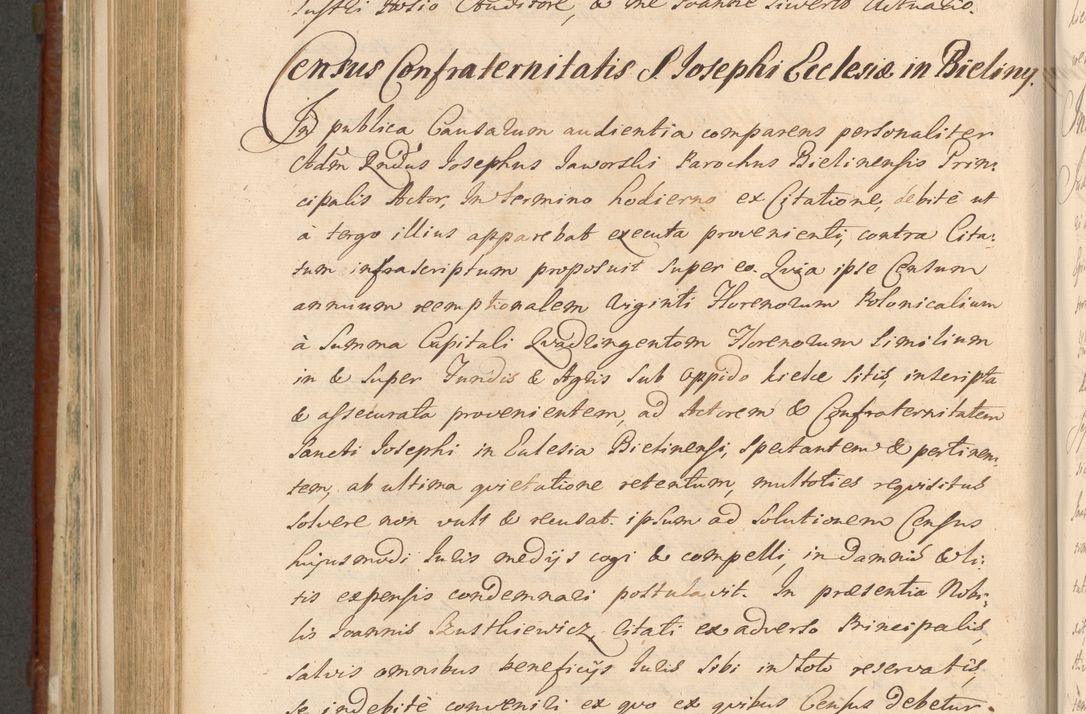 Justi Josio Auditore, & me Joanne Siwerto Actuario.
Census Confraternitatis S Josephi Ecclesiæ in Bieliny.
In publica Causarum audientia comparens personaliter
Adm Rndus Josephus Jaworski Parochus Bielinensis Prin-
cipalis Actor, In termino hodierno ex Citatione, debitè ut
à tergo illius apparebat executa provenienti, contra Cita-
tum infrascriptum proposuit super eo. Quia ipse Censum
annuum reemptionalem Viginti Florenorum Polonicalium
à Summa Capitali Quadringentorum Florenorum Similium
in & super Fundis & Agris sub Oppido Kielce sitis, inscripta
& assecurata provenientem, ad Actorem & Confraternitatem
Sancti Josephi in Eclesia Bielinensi, spectantem & pertinen-
tem, ab ultima quietatione retentum, multoties requisitus
solvere non vult & recusat. ipsum ad solutionem Census
hujusmodi Juris medijs cogi & compelli, in damnis & li-
tis expensis condemnari postulavit. In præsentia Nobi-
lis Joannis Szustkiewicz, Citati ex adverso Principalis,
salvis omnibus beneficijs Juris sibi in toto reservatis,
se indebitè conveniri ex quo ex quibus Census debetur.